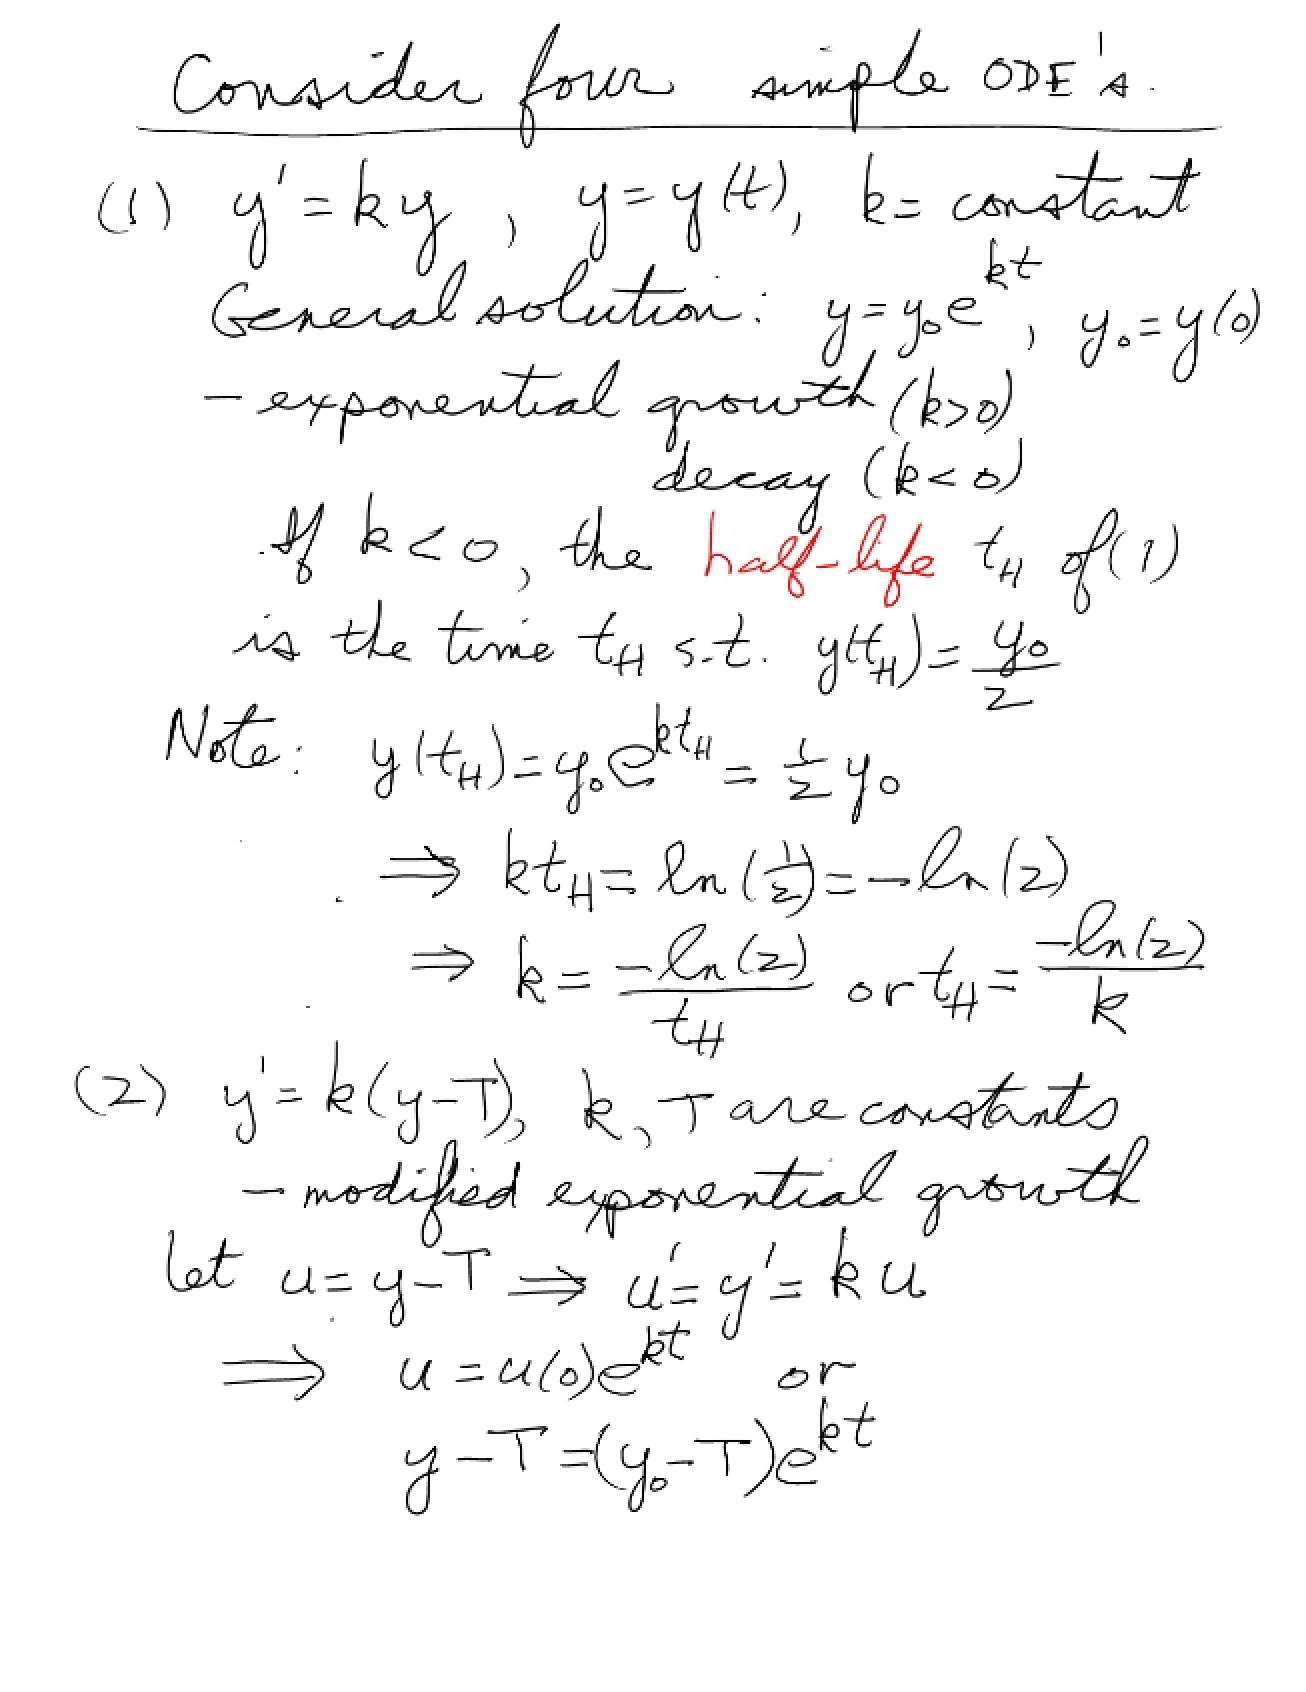 Consider four simple ODE's.
(1) y' = ky, y = y(t), k = constant
General solution: y = y₀e^{kt}, y₀ = y(0)
- exponential growth (k>0)
decay (k<0)
If k<0, the half-life t_H of (1)
is the time t_H s.t. y(t_H) = y₀/2
Note: y(t_H) = y₀e^{kt_H} = 1/2 y₀
⇒ kt_H = ln(1/2) = -ln(2)
⇒ k = -ln(2)/t_H or t_H = -ln(2)/k
(2) y' = k(y-T), k, T are constants
- modified exponential growth
let u = y-T ⇒ u' = y' = ku
⇒ u = u(0)e^{kt} or
y-T = (y₀-T)e^{kt}